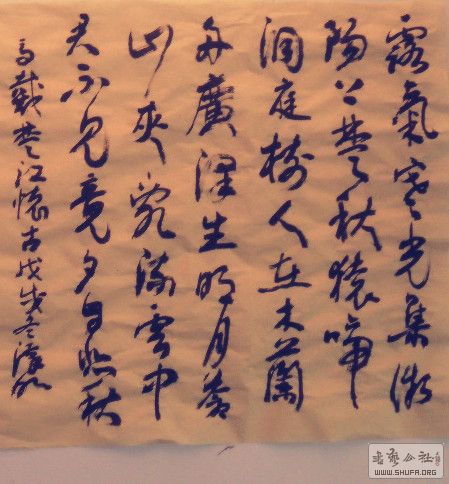 露氣寒光集微
陽下楚秋猿啼
洞庭樹人在木蘭
舟廣澤生明月蒼
山夾亂流雲中
君不見竟夕自悲秋
马戴楚江懷古戊戌冬
书艺公社
WWW.SHUFA.ORG